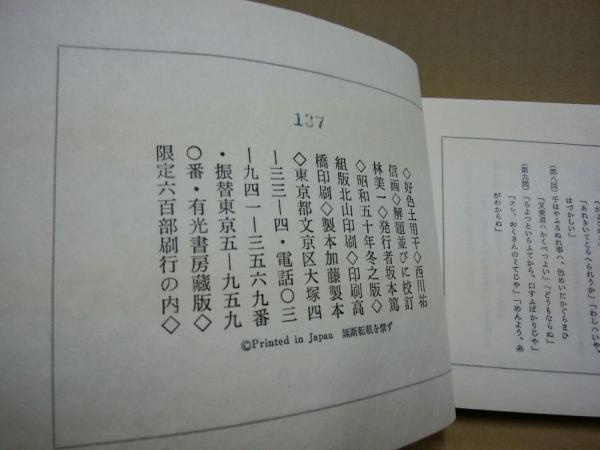 137
◇好色土用干◇西川祐
信画◇解題並びに校訂
林美一◇発行者坂本篤
◇昭和五十年冬之版◇
組版北山印刷◇印刷高
橋印刷◇製本加藤製本
◇東京都文京区大塚四
―三三―四・電話〇三
―九四一―三五六九番
・振替東京五―九五九
〇番・有光書房蔵版◇
限定六百部刷行の内◇
©Printed in Japan 無断転載を禁ず
「あれきいてこらへられうか」「わしハいや、
はづかしい」
(第八図) 千はやふるぬれ事ハ、色めいたかぐらまひ
「又衆道ハかくべつよい」「どうもならぬ」
(第九図)
「ちよつといらふてから、口すふばかりじや」
「アレ、おくさんのミてじや」「めんよう、糸
がわからぬ」